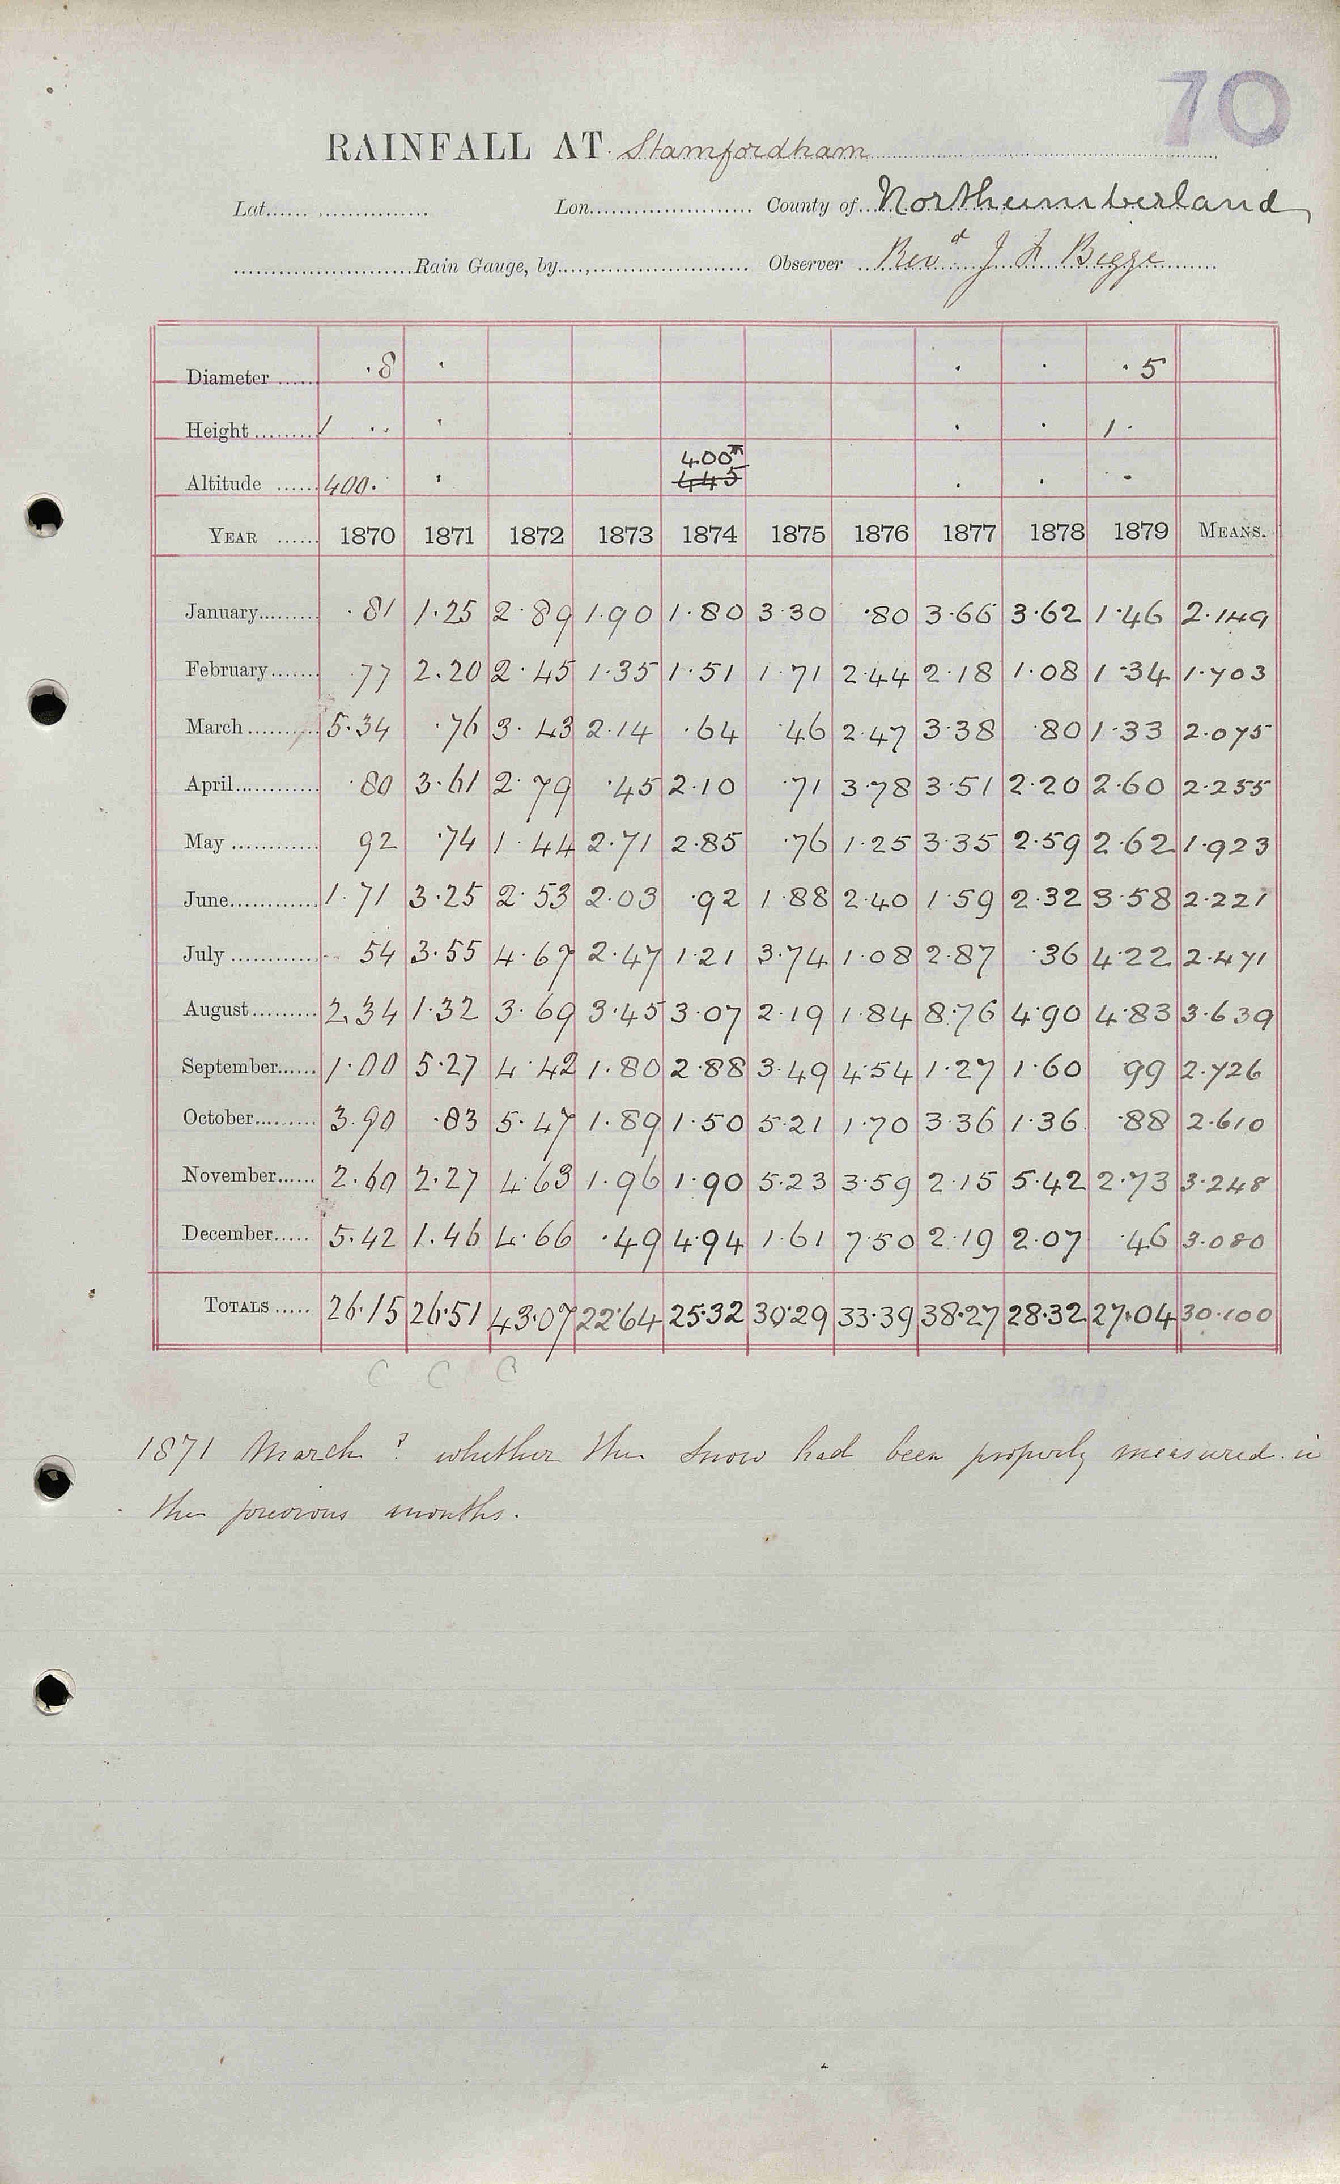 70
RAINFALL AT Stamfordham
Lat. Lon. County of Northumberland
Rain Gauge, by Observer Revd J F Bigge
Diameter ·8 · · · ·5
Height 1 ·· · · · 1·
400T
Altitude 400· · 445 · · ·
YEAR 1870 1871 1872 1873 1874 1875 1876 1877 1878 1879 MEANS.
January ·81 1·25 2·89 1·90 1·80 3·30 ·80 3·66 3·62 1·46 2·149
February ·77 2·20 2·45 1·35 1·51 1·71 2·44 2·18 1·08 1·34 1·703
March 5·34 ·76 3·43 2·14 ·64 ·46 2·47 3·38 ·80 1·33 2·075
April ·80 3·61 2·79 ·45 2·10 ·71 3·78 3·51 2·20 2·60 2·255
May 92 ·74 1·44 2·71 2·85 ·76 1·25 3·35 2·59 2·62 1·923
June 1·71 3·25 2·53 2·03 ·92 1·88 2·40 1·59 2·32 3·58 2·221
July 54 3·55 4·67 2·47 1·21 3·74 1·08 2·87 ·36 4·22 2·471
August 2·34 1·32 3·69 3·45 3·07 2·19 1·84 8·76 4·90 4·83 3·639
September 1·00 5·27 4·42 1·80 2·88 3·49 4·54 1·27 1·60 99 2·726
October 3·90 ·83 5·47 1·89 1·50 5·21 1·70 3·36 1·36 ·88 2·610
November 2·60 2·27 4·63 1·96 1·90 5·23 3·59 2·15 5·42 2·73 3·248
December 5·42 1·46 4·66 ·49 4·94 1·61 7·50 2·19 2·07 ·46 3·080
TOTALS 26·15 26·51 43·07 22·64 25·32 30·29 33·39 38·27 28·32 27·04 30·100
C C C
1871 March ? whether the snow had been properly measured in
the previous months.